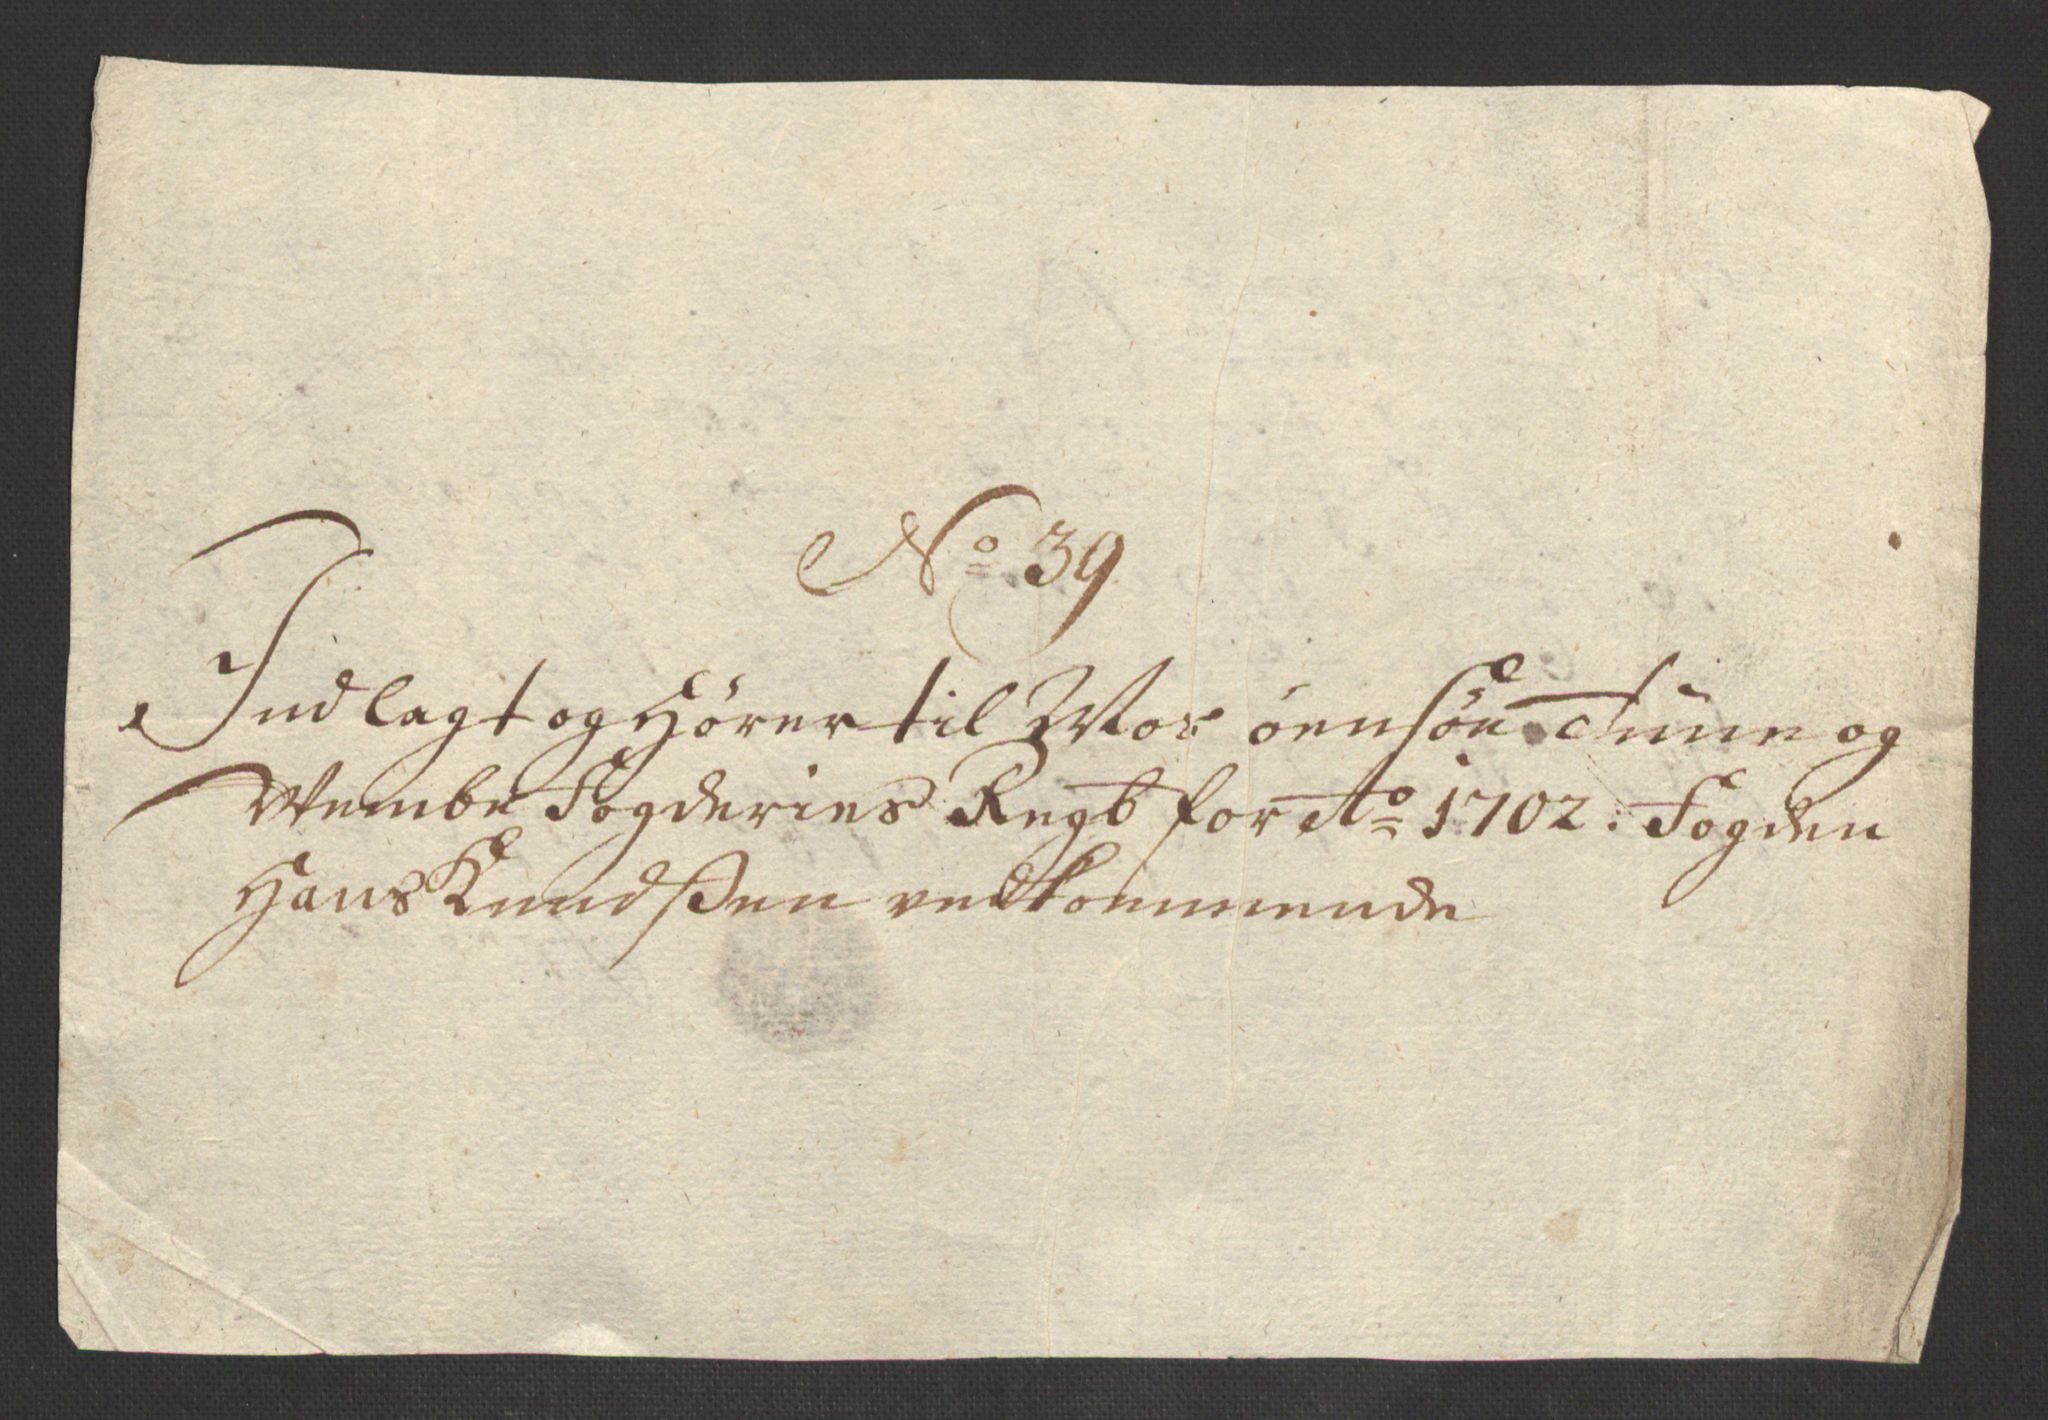 No 39
Indlagt og hører til Mos øensöe Tune og
Wembe Fogderies Regb for Ao 1702. Fogden
Hans Knudßen vedkommende